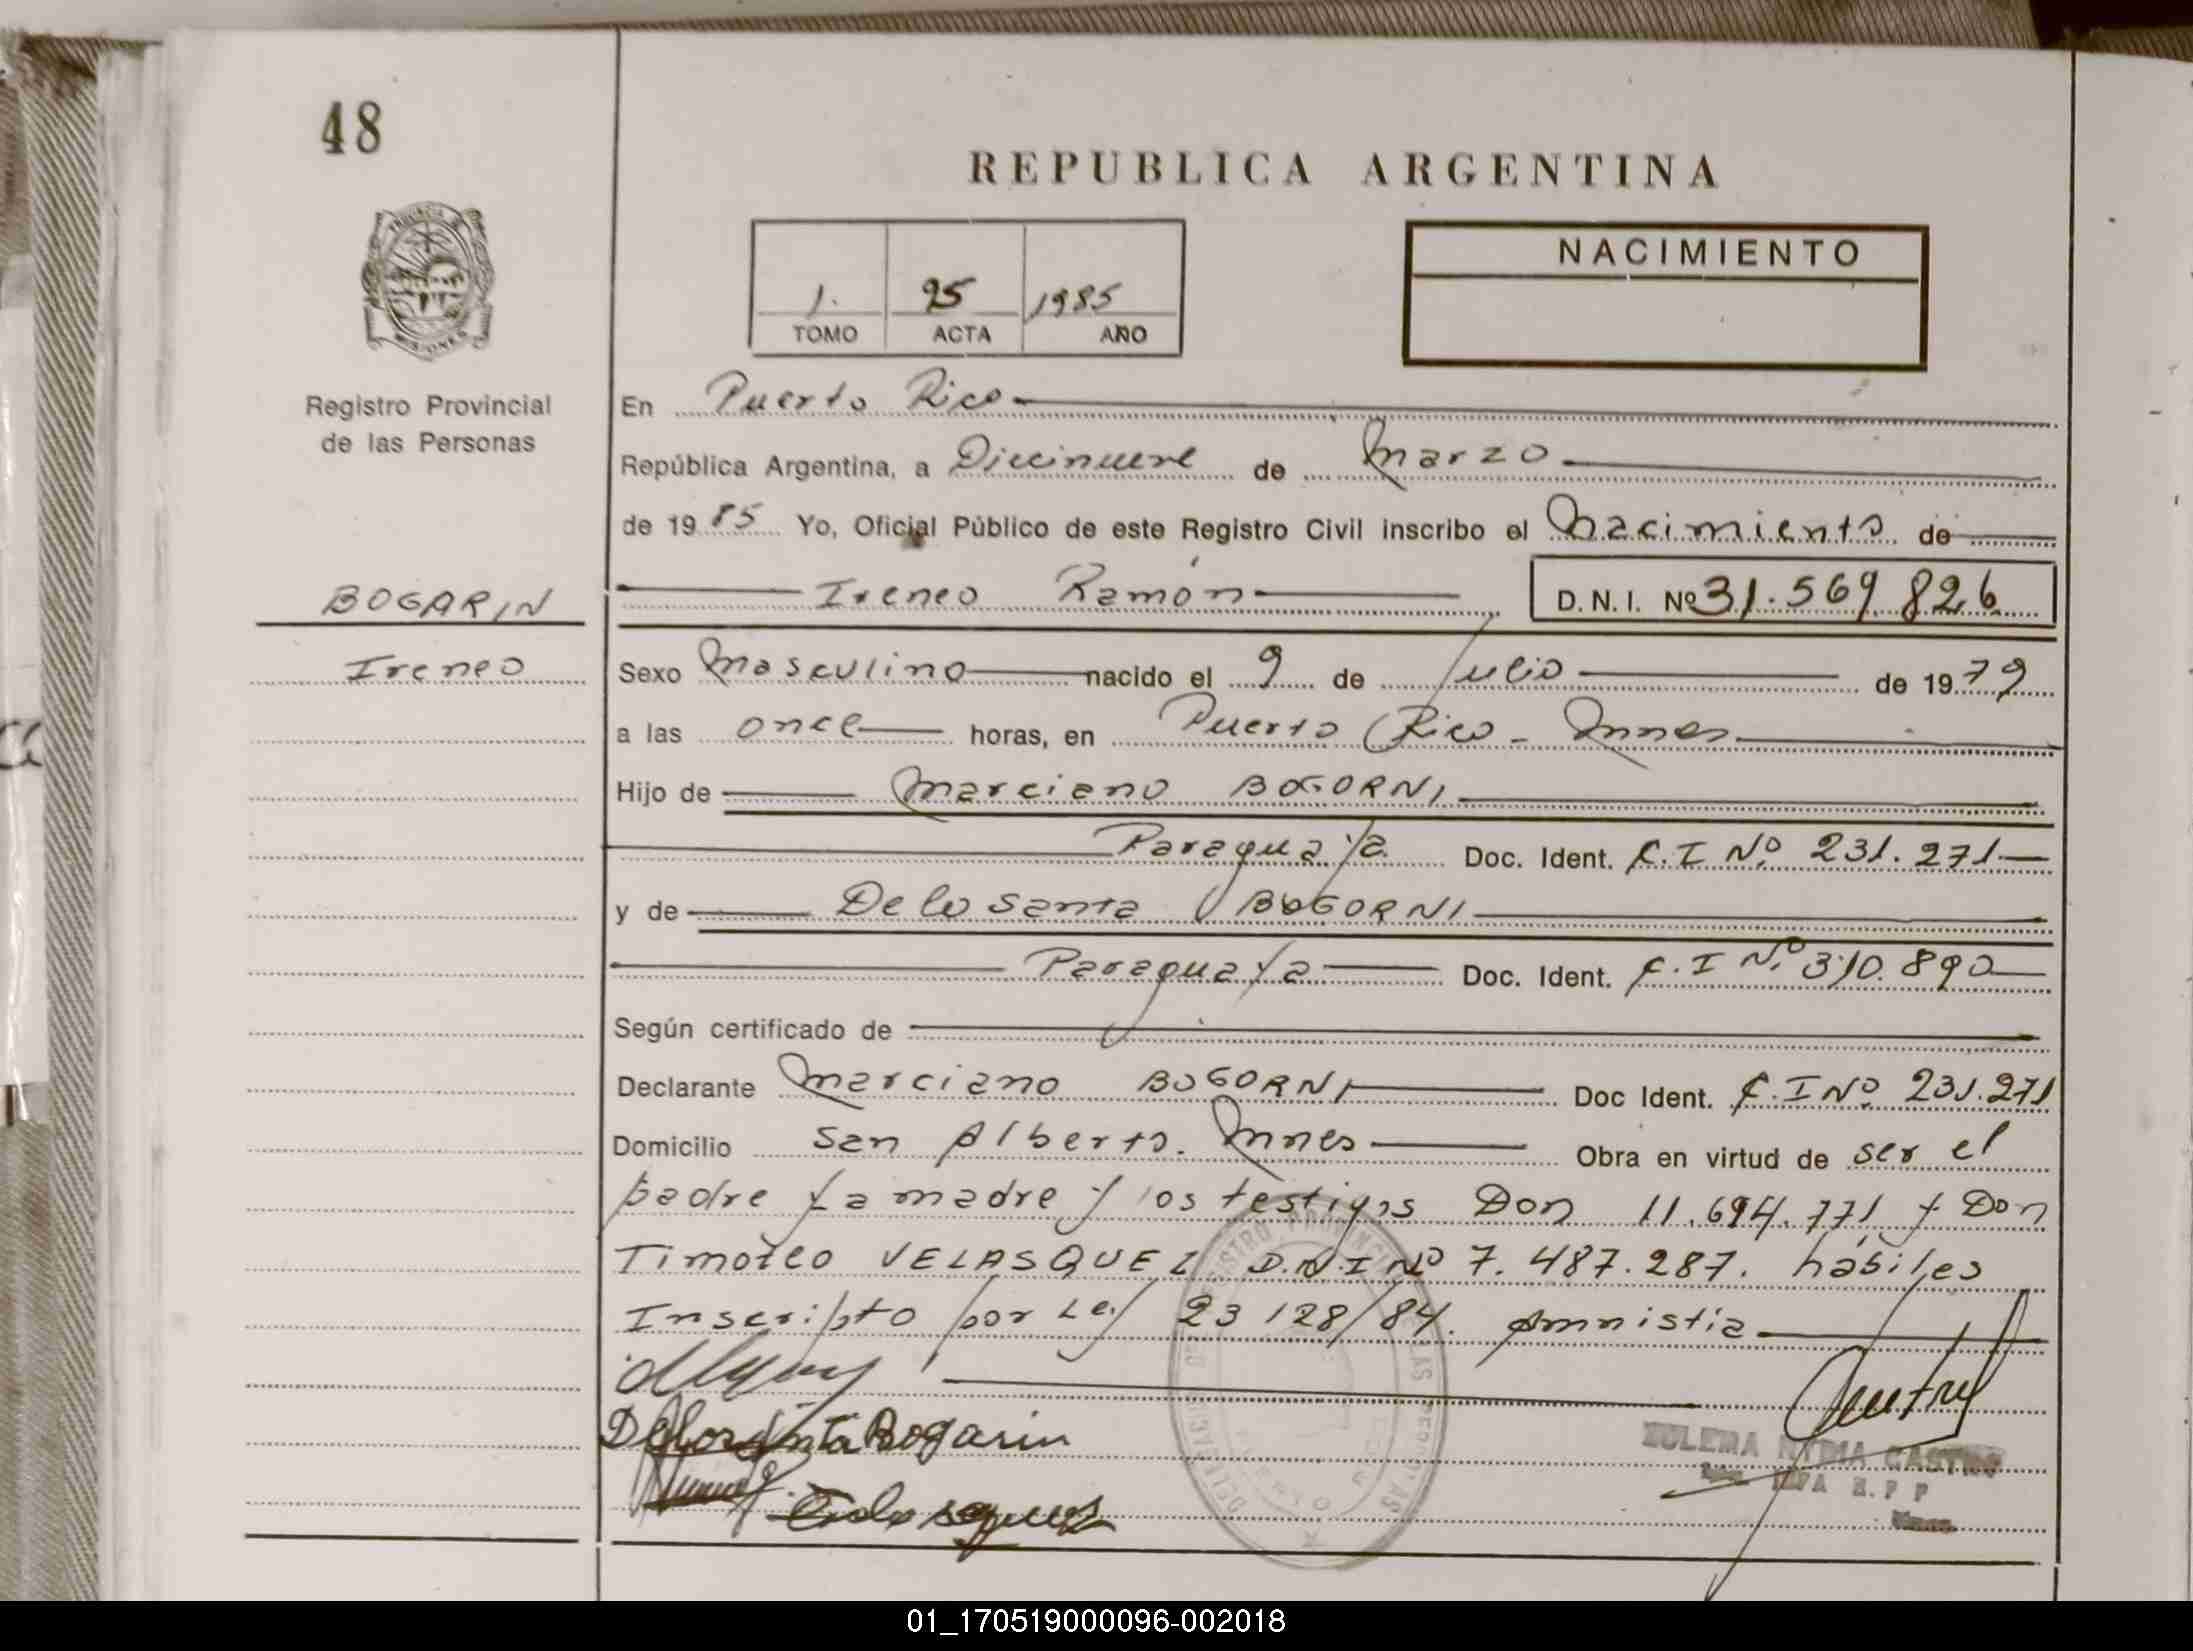 48
REPUBLICA ARGENTINA
NACIMIENTO
1. 95 1985
TOMO ACTA AÑO
PROVINCIA DE MISIONES
Registro Provincial
de las Personas
En Puerto Rico
República Argentina, a Diecinueve de Marzo
de 1985 Yo, Oficial Público de este Registro Civil inscribo el Nacimiento de
BOGARIN
Ireneo Ramón D.N.I. Nº 31.569.826
Ireneo
Sexo Masculino nacido el 9 de Julio de 1979
a las once horas, en Puerto Rico - Mnes
Hijo de Marciano BOGORNI
Paraguaya Doc. Ident. C.I Nº 231.271
y de Delosanta BOGORNI
Paraguaya Doc. Ident. C.I Nº 310.890
Según certificado de
Declarante Marciano BOGORNI Doc Ident. C.I Nº 231.271
Domicilio San Alberto. Mnes Obra en virtud de ser el
padre y la madre y los testigos Don 11.694.771 y Don
Timoteo VELASQUEZ D.N.I Nº 7.487.287. hábiles
Inscripto por Ley 23128/84. Amnistia
Bogarin
ZULEMA NIDIA CASTRO
R.P.P
01_170519000096-002018